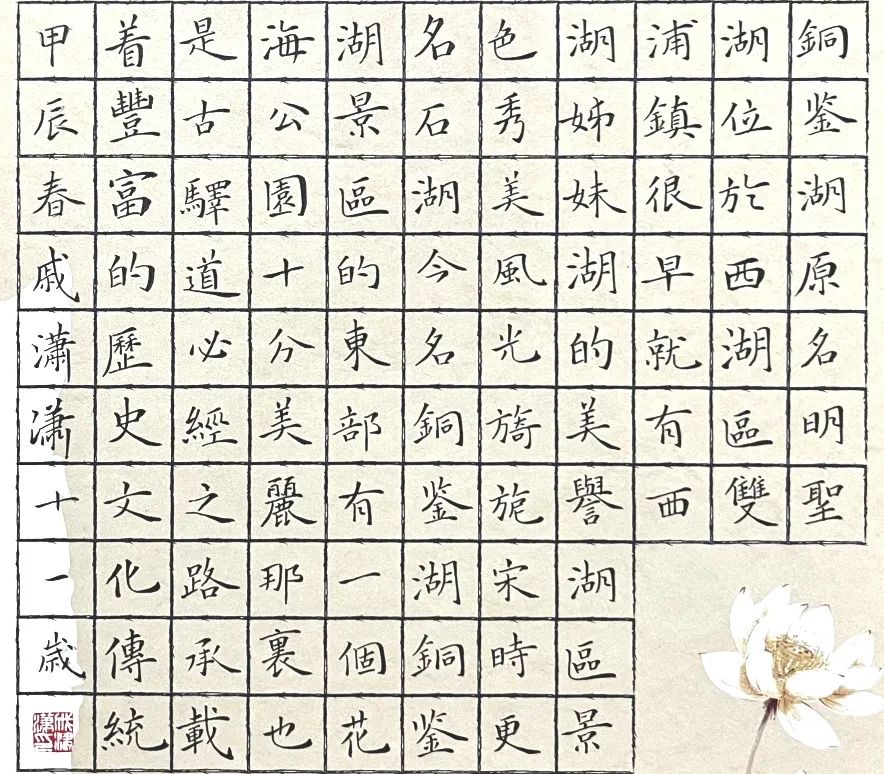 銅鉴湖原名明聖
湖位於西湖區雙
浦鎮很早就有西
湖姊妹湖的美譽湖區景
色秀美風光旖旎宋時更
名石湖今名銅鉴湖銅鉴
湖景區的東部有一個花
海公園十分美麗那裏也
是古驛道必經之路承載
着豐富的歷史文化傳統
甲辰春戚瀟瀟十一歲